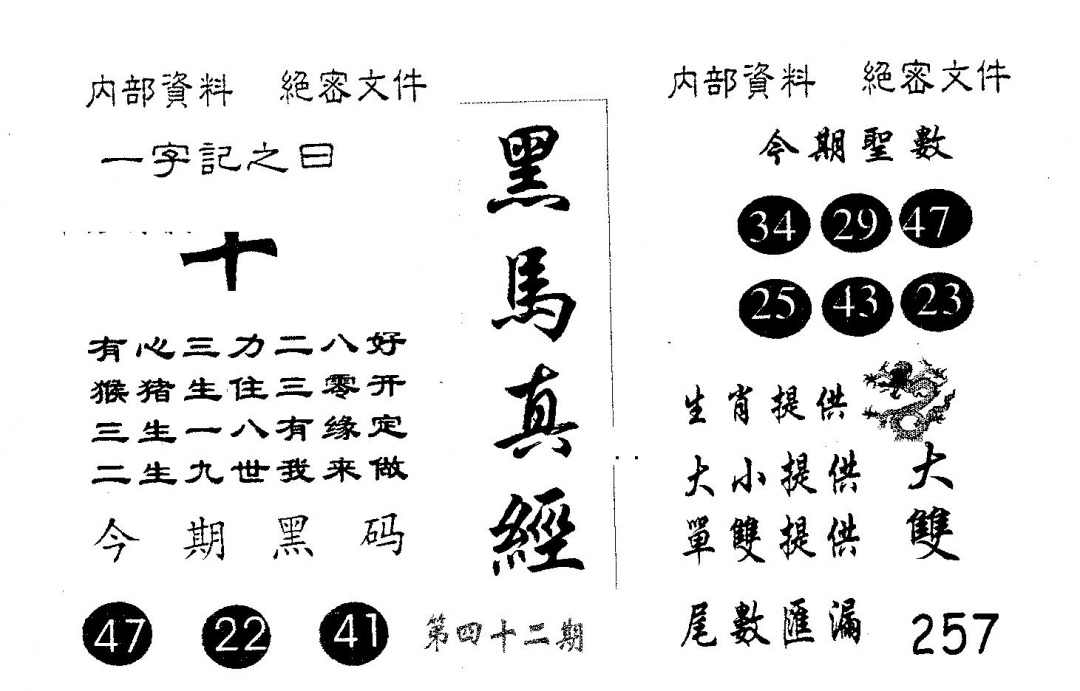 内部資料 絕密文件
一字記之曰
十
有心三力二八好
猴猪生住三零开
三生一八有缘定
二生九世我来做
今期黑码
47 22 41
黑馬真經
第四十二期
内部資料 絕密文件
今期聖數
34 29 47
25 43 23
生肖提供
大小提供 大
單雙提供 雙
尾數匯漏 257